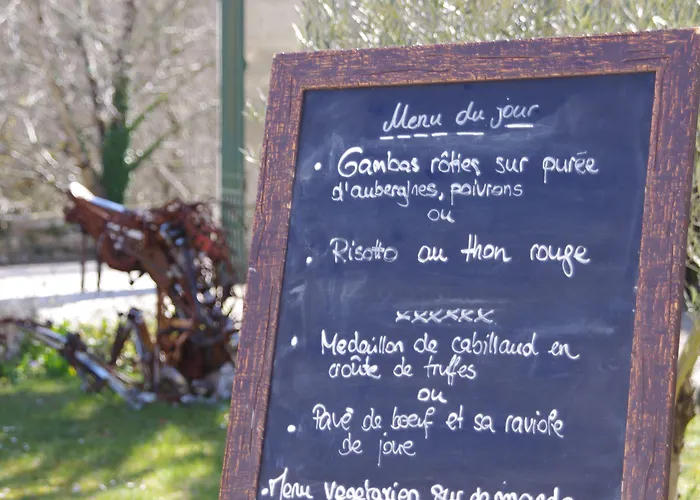 Menu du jour
• Gambas rôties sur purée
d'aubergines, poivrons
ou
• Risotto au thon rouge
xxxxxx
• Medaillon de cabillaud en
croûte de truffes
ou
• Pavé de boeuf et sa raviole
de joue
• Menu vegetarien sur demande